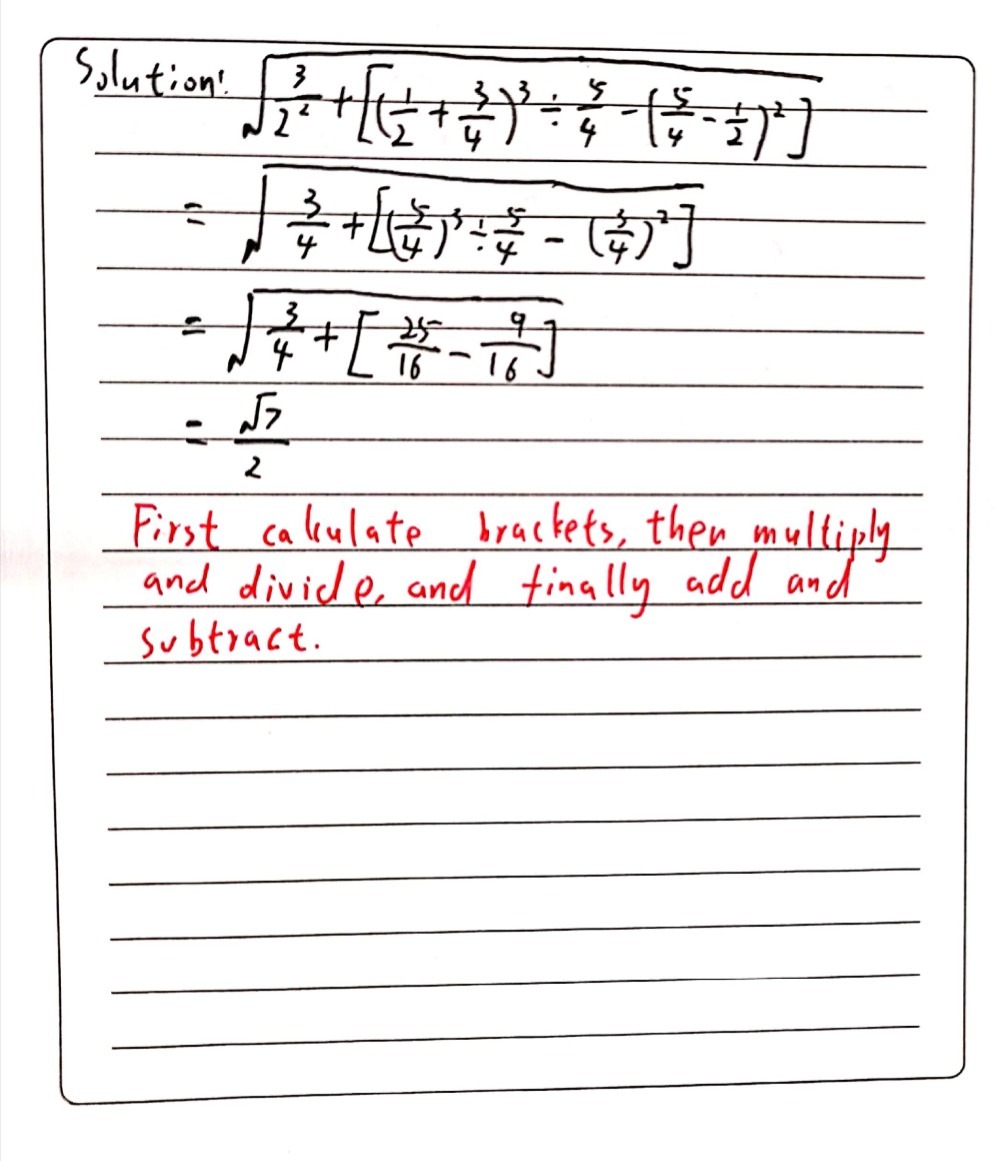 Solution: √(3/2² + [(1/2 + 3/4)³ ÷ 5/4 - (5/4 - 1/2)²])
= √(3/4 + [(5/4)³ ÷ 5/4 - (3/4)²])
= √(3/4 + [25/16 - 9/16])
= √7/2
First calculate brackets, then multiply
and divide, and finally add and
subtract.